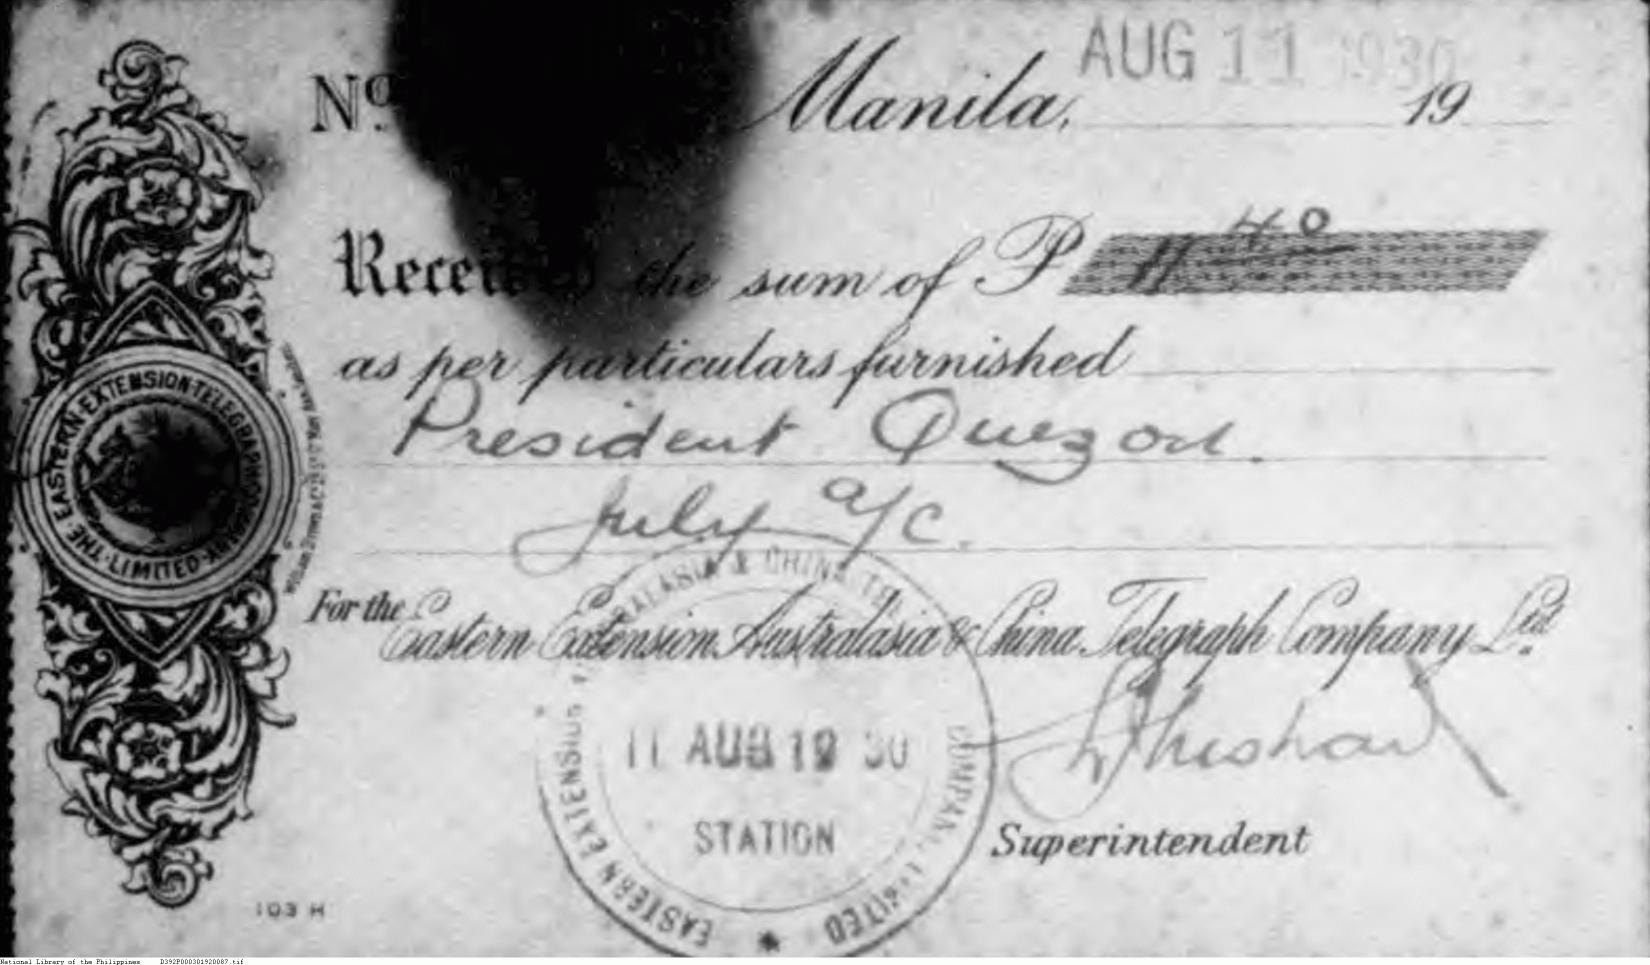 AUG 11 1930
No. Manila, 19
Received the sum of ₱ 11 40
as per particulars furnished
President Quezon.
July a/c.
For the Eastern Extension Australasia & China Telegraph Company Ltd.
THE EASTERN EXTENSION TELEGRAPH COMPANY LIMITED
EASTERN EXTENSION AUSTRALASIA & CHINA TEL. COMPANY LIMITED
11 AUG 19 30
STATION
Superintendent
103 H
National Library of the Philippines D392P000301920087.tif